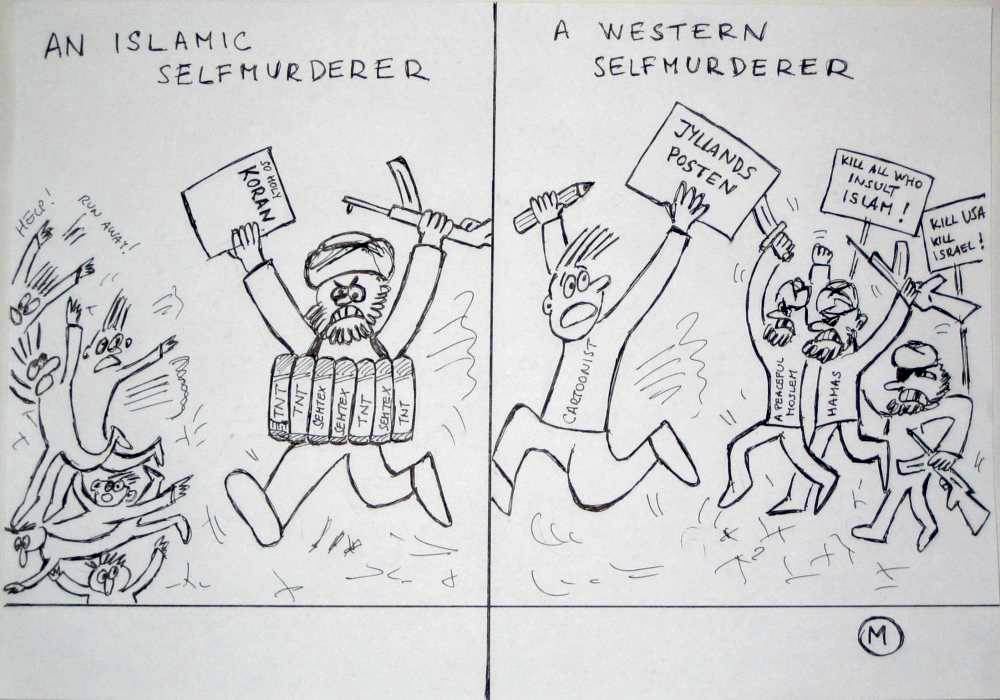 AN ISLAMIC
SELFMURDERER
HELP!
RUN
AWAY!
SO HOLY
KORAN
TNT
TNT
SEMTEX
SEMTEX
TNT
SEMTEX
TNT
A WESTERN
SELFMURDERER
JYLLANDS
POSTEN
CARTOONIST
KILL ALL WHO
INSULT
ISLAM!
KILL USA
KILL
ISRAEL!
A PEACEFUL
MOSLEM
HAMAS
M